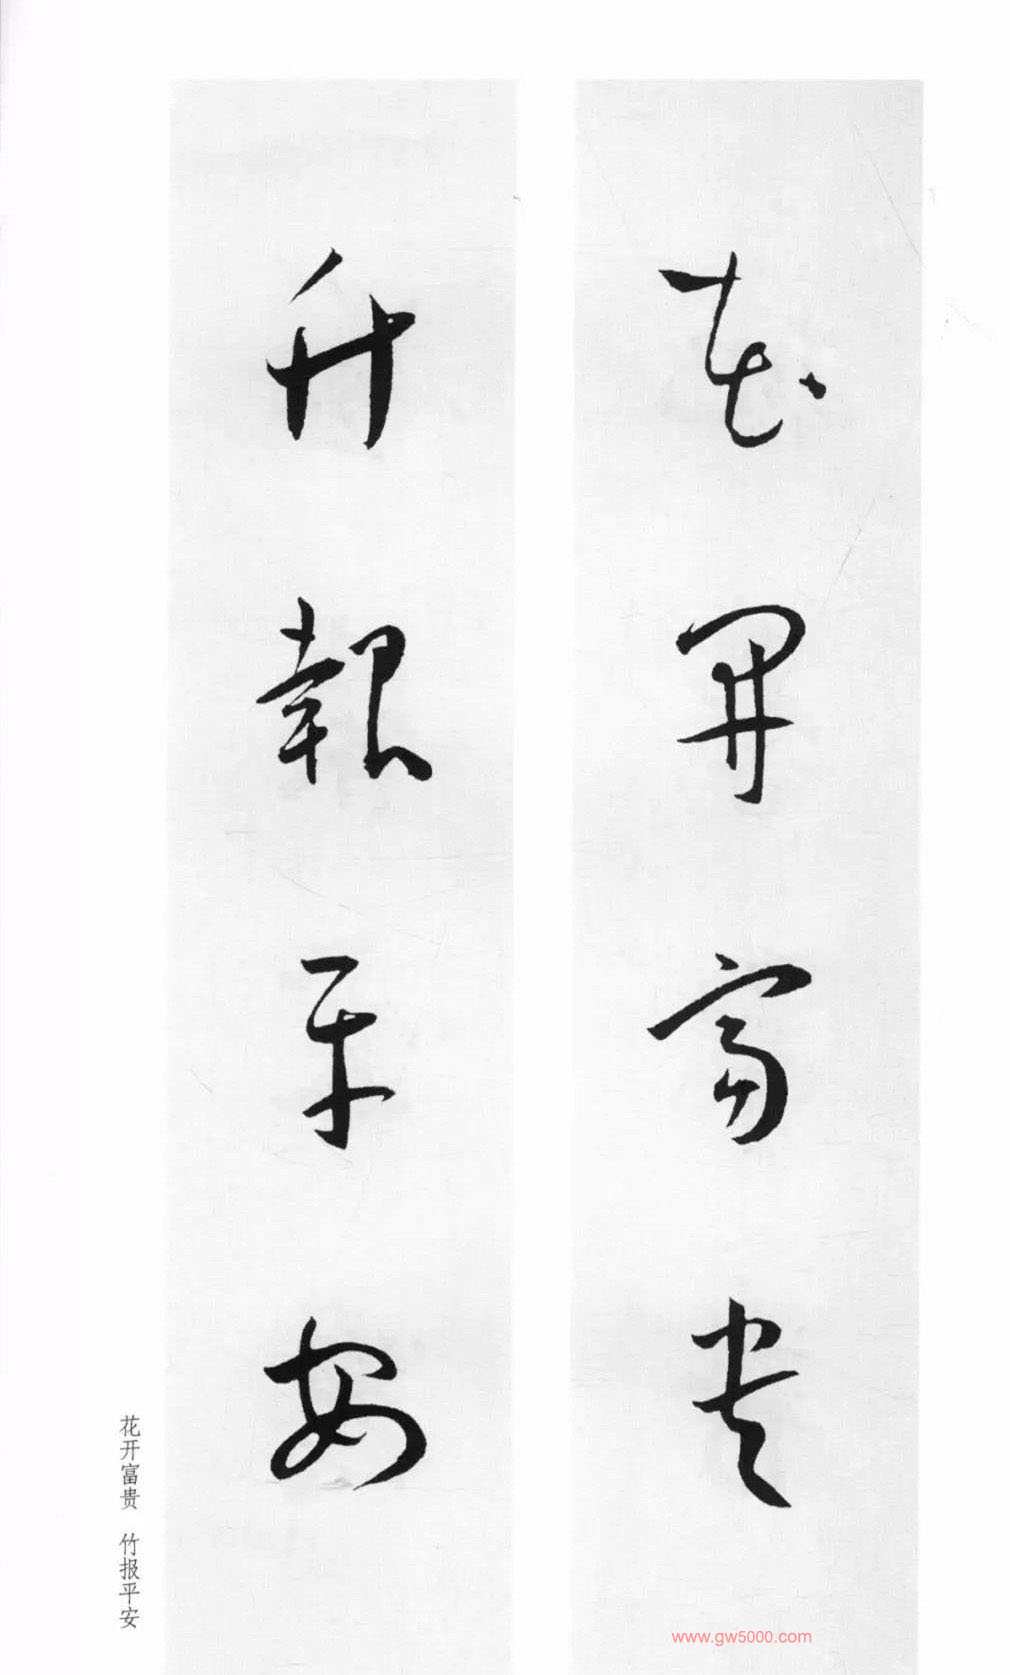 花開富貴
竹報平安
花开富贵 竹报平安
www.gw5000.com